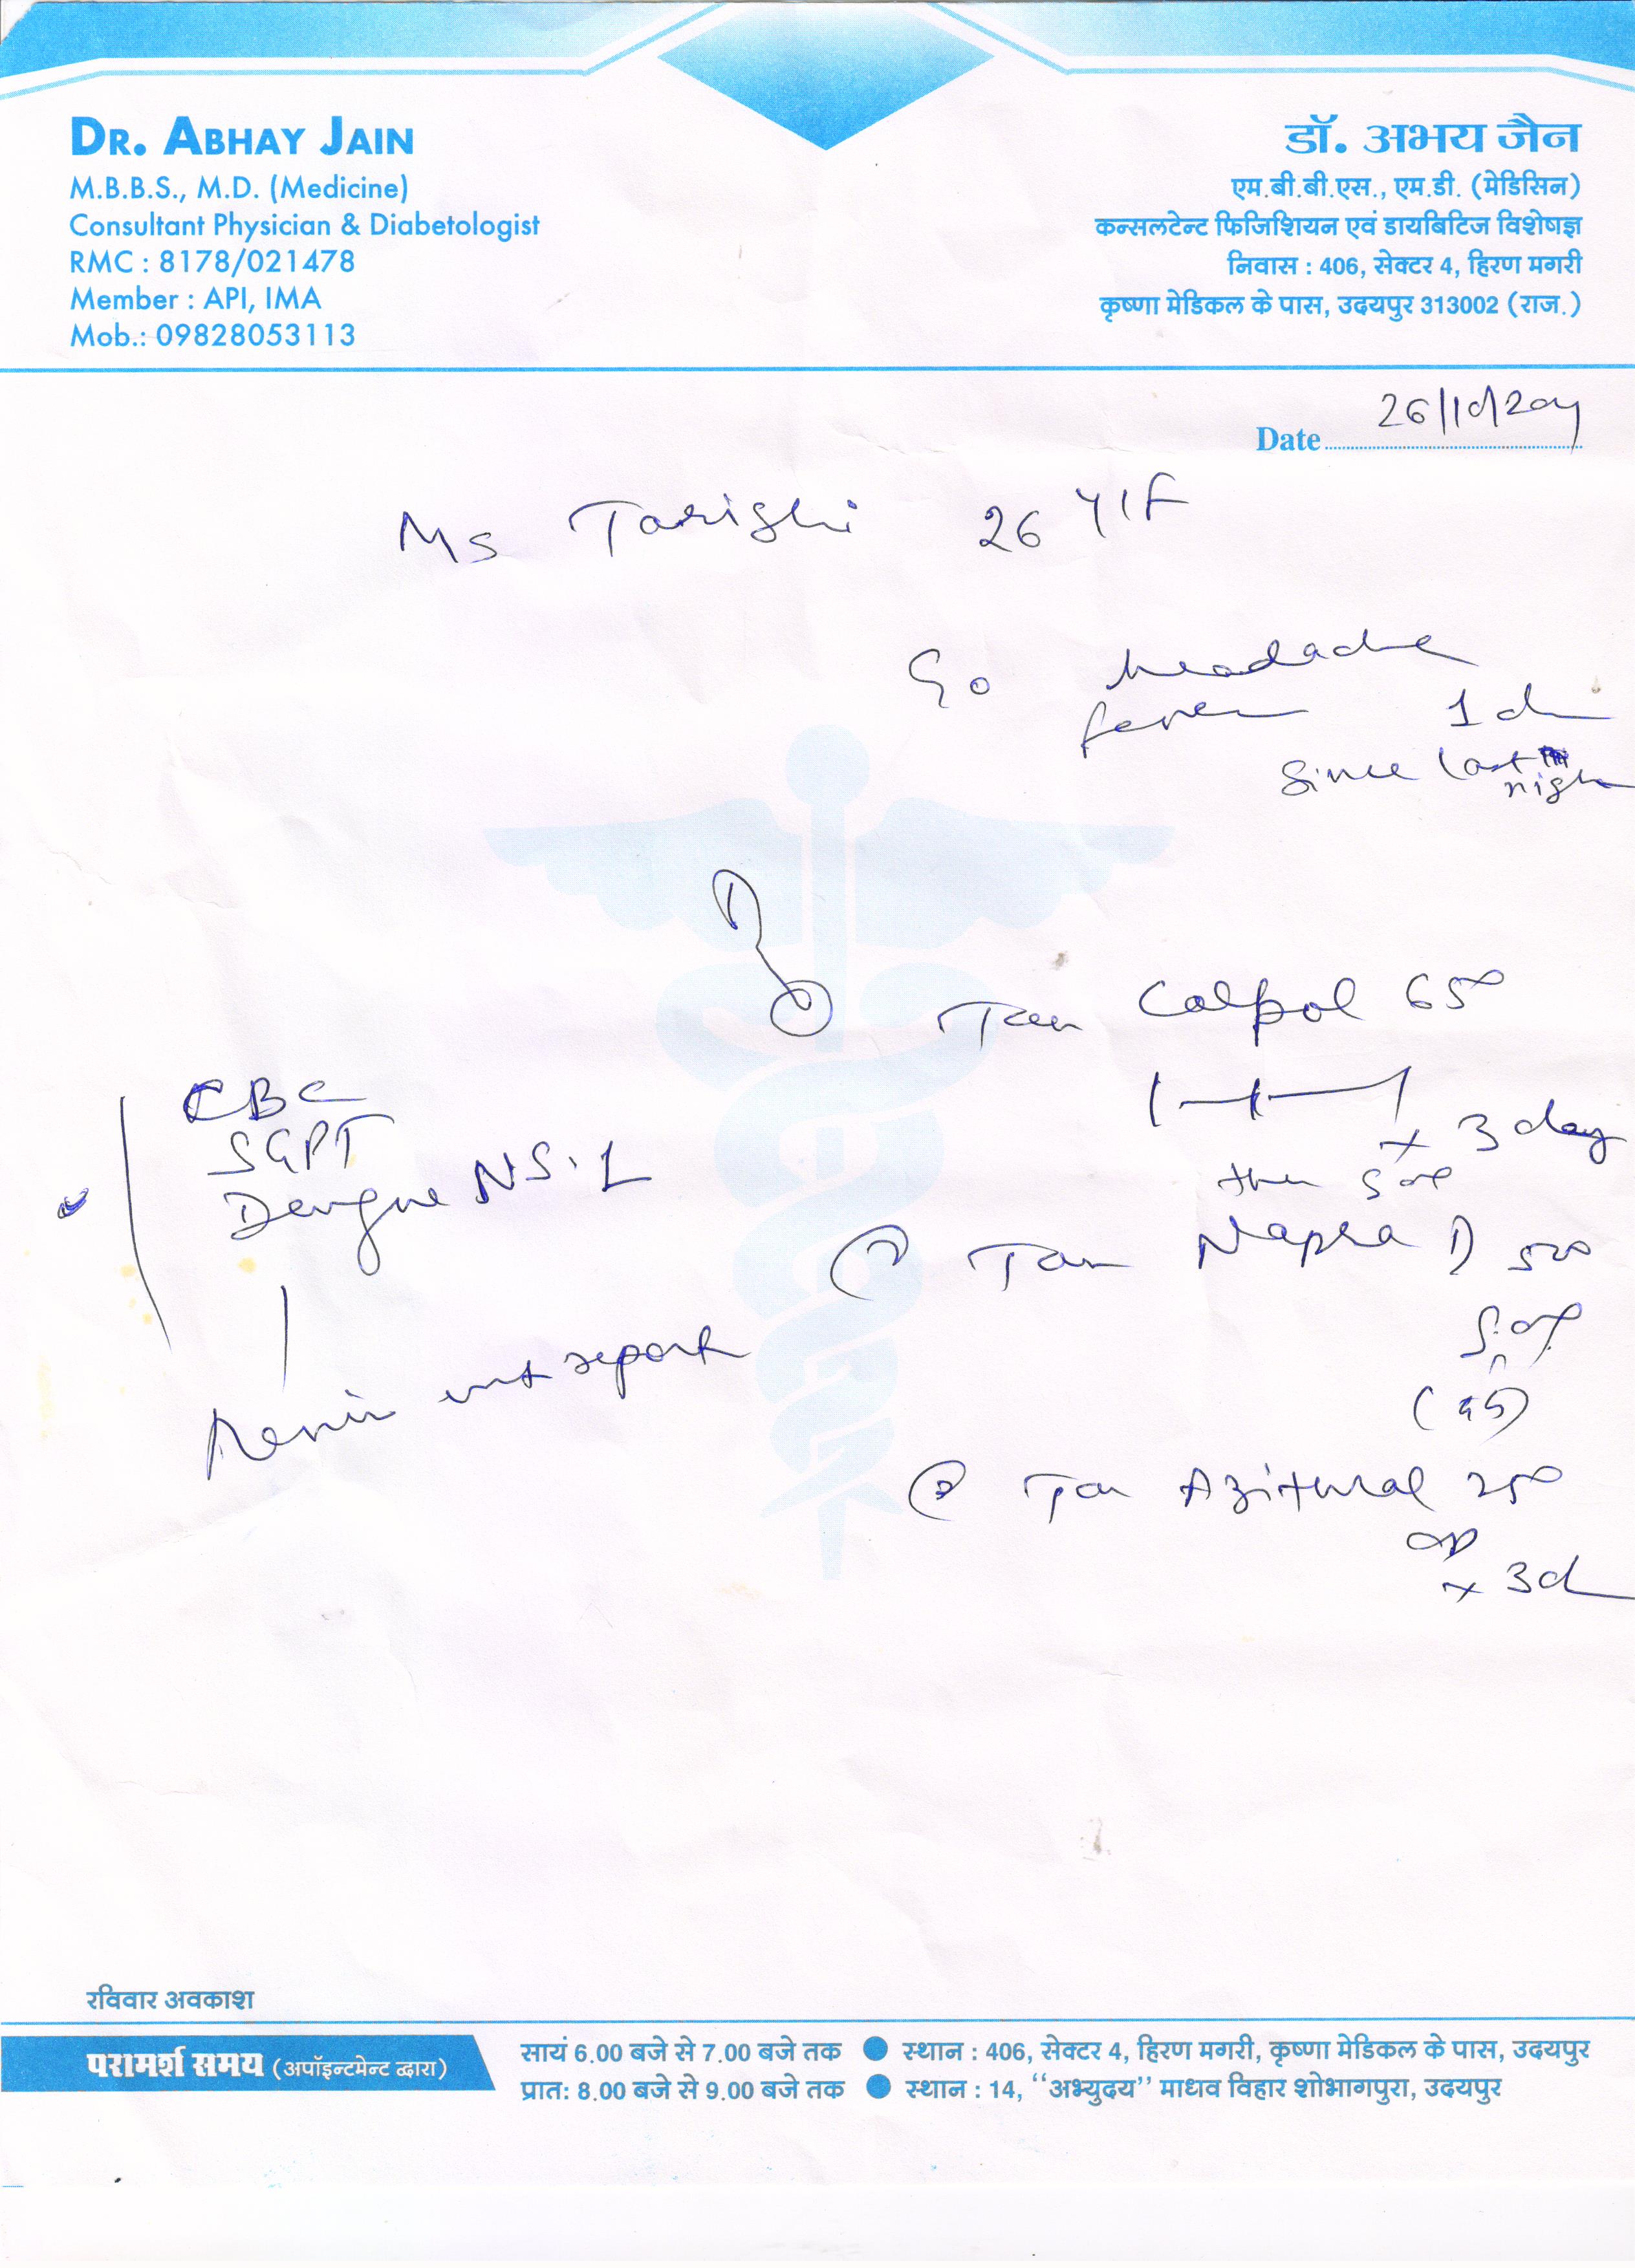 DR. ABHAY JAIN
M.B.B.S., M.D. (Medicine)
Consultant Physician & Diabetologist
RMC : 8178/021478
Member : API, IMA
Mob.: 09828053113
डॉ. अभय जैन
एम.बी.बी.एस., एम.डी. (मेडिसिन)
कन्सलटेन्ट फिजिशियन एवं डायबिटिज विशेषज्ञ
निवास : 406, सेक्टर 4, हिरण मगरी
कृष्णा मेडिकल के पास, उदयपुर 313002 (राज.)
Date 26/10/
Ms 26 Y/F
C/o headache
fever 1d
Since last
night
Calpol 650
1-1-1
x 3 day
then SOS
CBC
SGPT
Dengue NS-1
② Tab D 500
SOS
report
③ Tab Azithral 250
OD
x 3d
रविवार अवकाश
परामर्श समय (अपॉइन्टमेन्ट द्वारा)
सायं 6.00 बजे से 7.00 बजे तक ● स्थान : 406, सेक्टर 4, हिरण मगरी, कृष्णा मेडिकल के पास, उदयपुर
प्रात: 8.00 बजे से 9.00 बजे तक ● स्थान : 14, ‘‘अभ्युदय’’ माधव विहार शोभागपुरा, उदयपुर